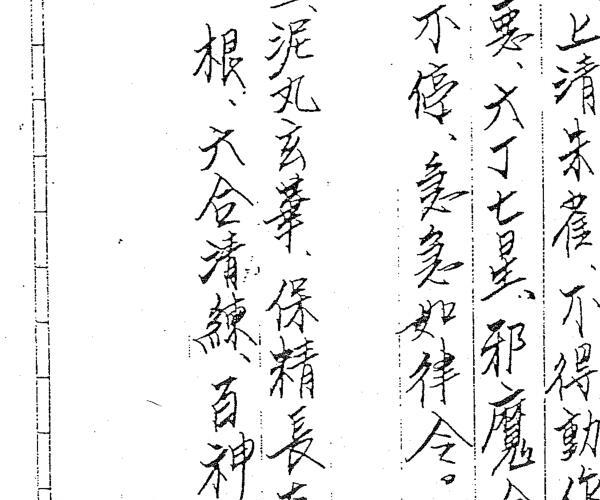 上清朱雀、不得動作
悪、六丁七星、邪魔
不停、急急如律令。
泥丸玄華、保精長
根、六合清練、百神